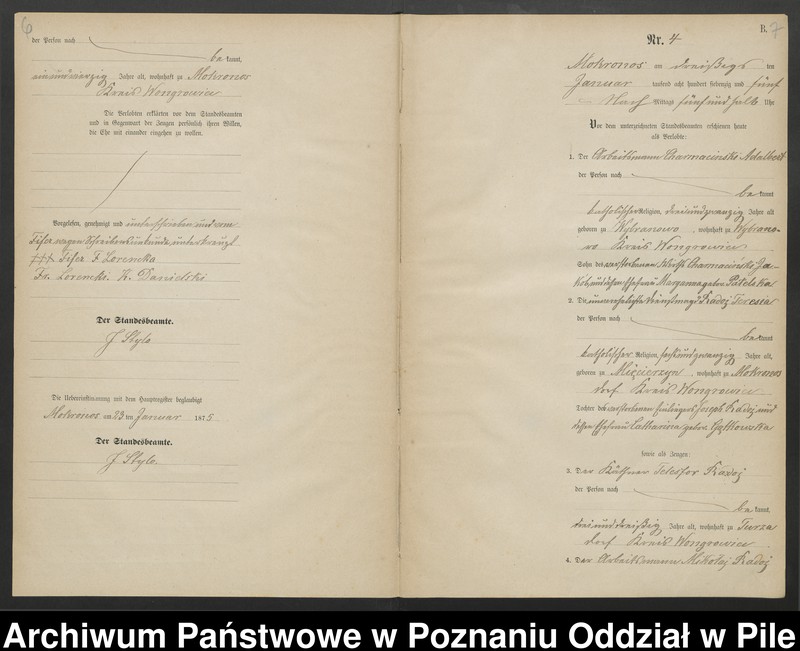 6
der Person nach
be kannt,
einundvierzig Jahre alt, wohnhaft zu Mokronos
Kreis Wongrowiec
Die Verlobten erklärten vor dem Standesbeamten
und in Gegenwart der Zeugen persönlich ihren Willen,
die Ehe mit einander eingehen zu wollen.
Vorgelesen, genehmigt und unterschrieben und vom
wegen Schreibensunkunde unterkreuzt
+++ F. Lorencka
Fr. Lorencki. K. Danielski
Der Standesbeamte.
J Stylo
Die Uebereinstimmung mit dem Hauptregister beglaubigt
Mokronos am 23 ten Januar 1875
Der Standesbeamte.
J Stylo.
B. 7
Nr. 4
Mokronos am dreißigs ten
Januar tausend acht hundert siebenzig und fünf
Nach Mittags fünfundhalb Uhr
Vor dem unterzeichneten Standesbeamten erschienen heute
als Verlobte:
1. Der Arbeitsmann Charmacinski Adalbert
der Person nach
be kannt
katholischer Religion, dreiundzwanzig Jahre alt
geboren zu Wybranowo, wohnhaft zu Wybrano-
wo Kreis Wongrowiec
Sohn des verstorbenen Wirths Charmacinski Ja-
kob, und dessen Ehefrau Maryanna geborn Patelska
2. Die unverehelichte Dienstmagd Kadoj Teresia
der Person nach
be kannt
katholischer Religion, sechsundzwanzig Jahre alt,
geboren zu Mięcierzyn, wohnhaft zu Mokronos
dorf Kreis Wongrowiec
Tochter des verstorbenen Einliegers Joseph Kadoj und
dessen Ehefrau Catharina geborn Gątkowska
sowie als Zeugen:
3. Der Käthner Telesfor Kadoj
der Person nach
be kannt,
dreiunddreißig Jahre alt, wohnhaft zu Turza
dorf Kreis Wongrowiec
4. Der Arbeitsmann Mikołaj Kadoj
Archiwum Państwowe w Poznaniu Oddział w Pile